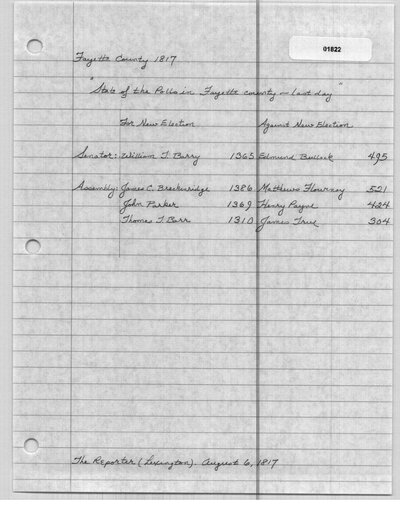 01822
Fayette County 1817
"State of the Polls in Fayette county — last day"
For New Election Against New Election
Senator: William T. Barry 1365 Edmund Bullock 495
Assembly: James C. Breckinridge 1386 Matthews Flourney 521
John Parker 1369 Henry Payne 424
Thomas T. Barr 1310 James True 304
The Reporter (Lexington). August 6, 1817